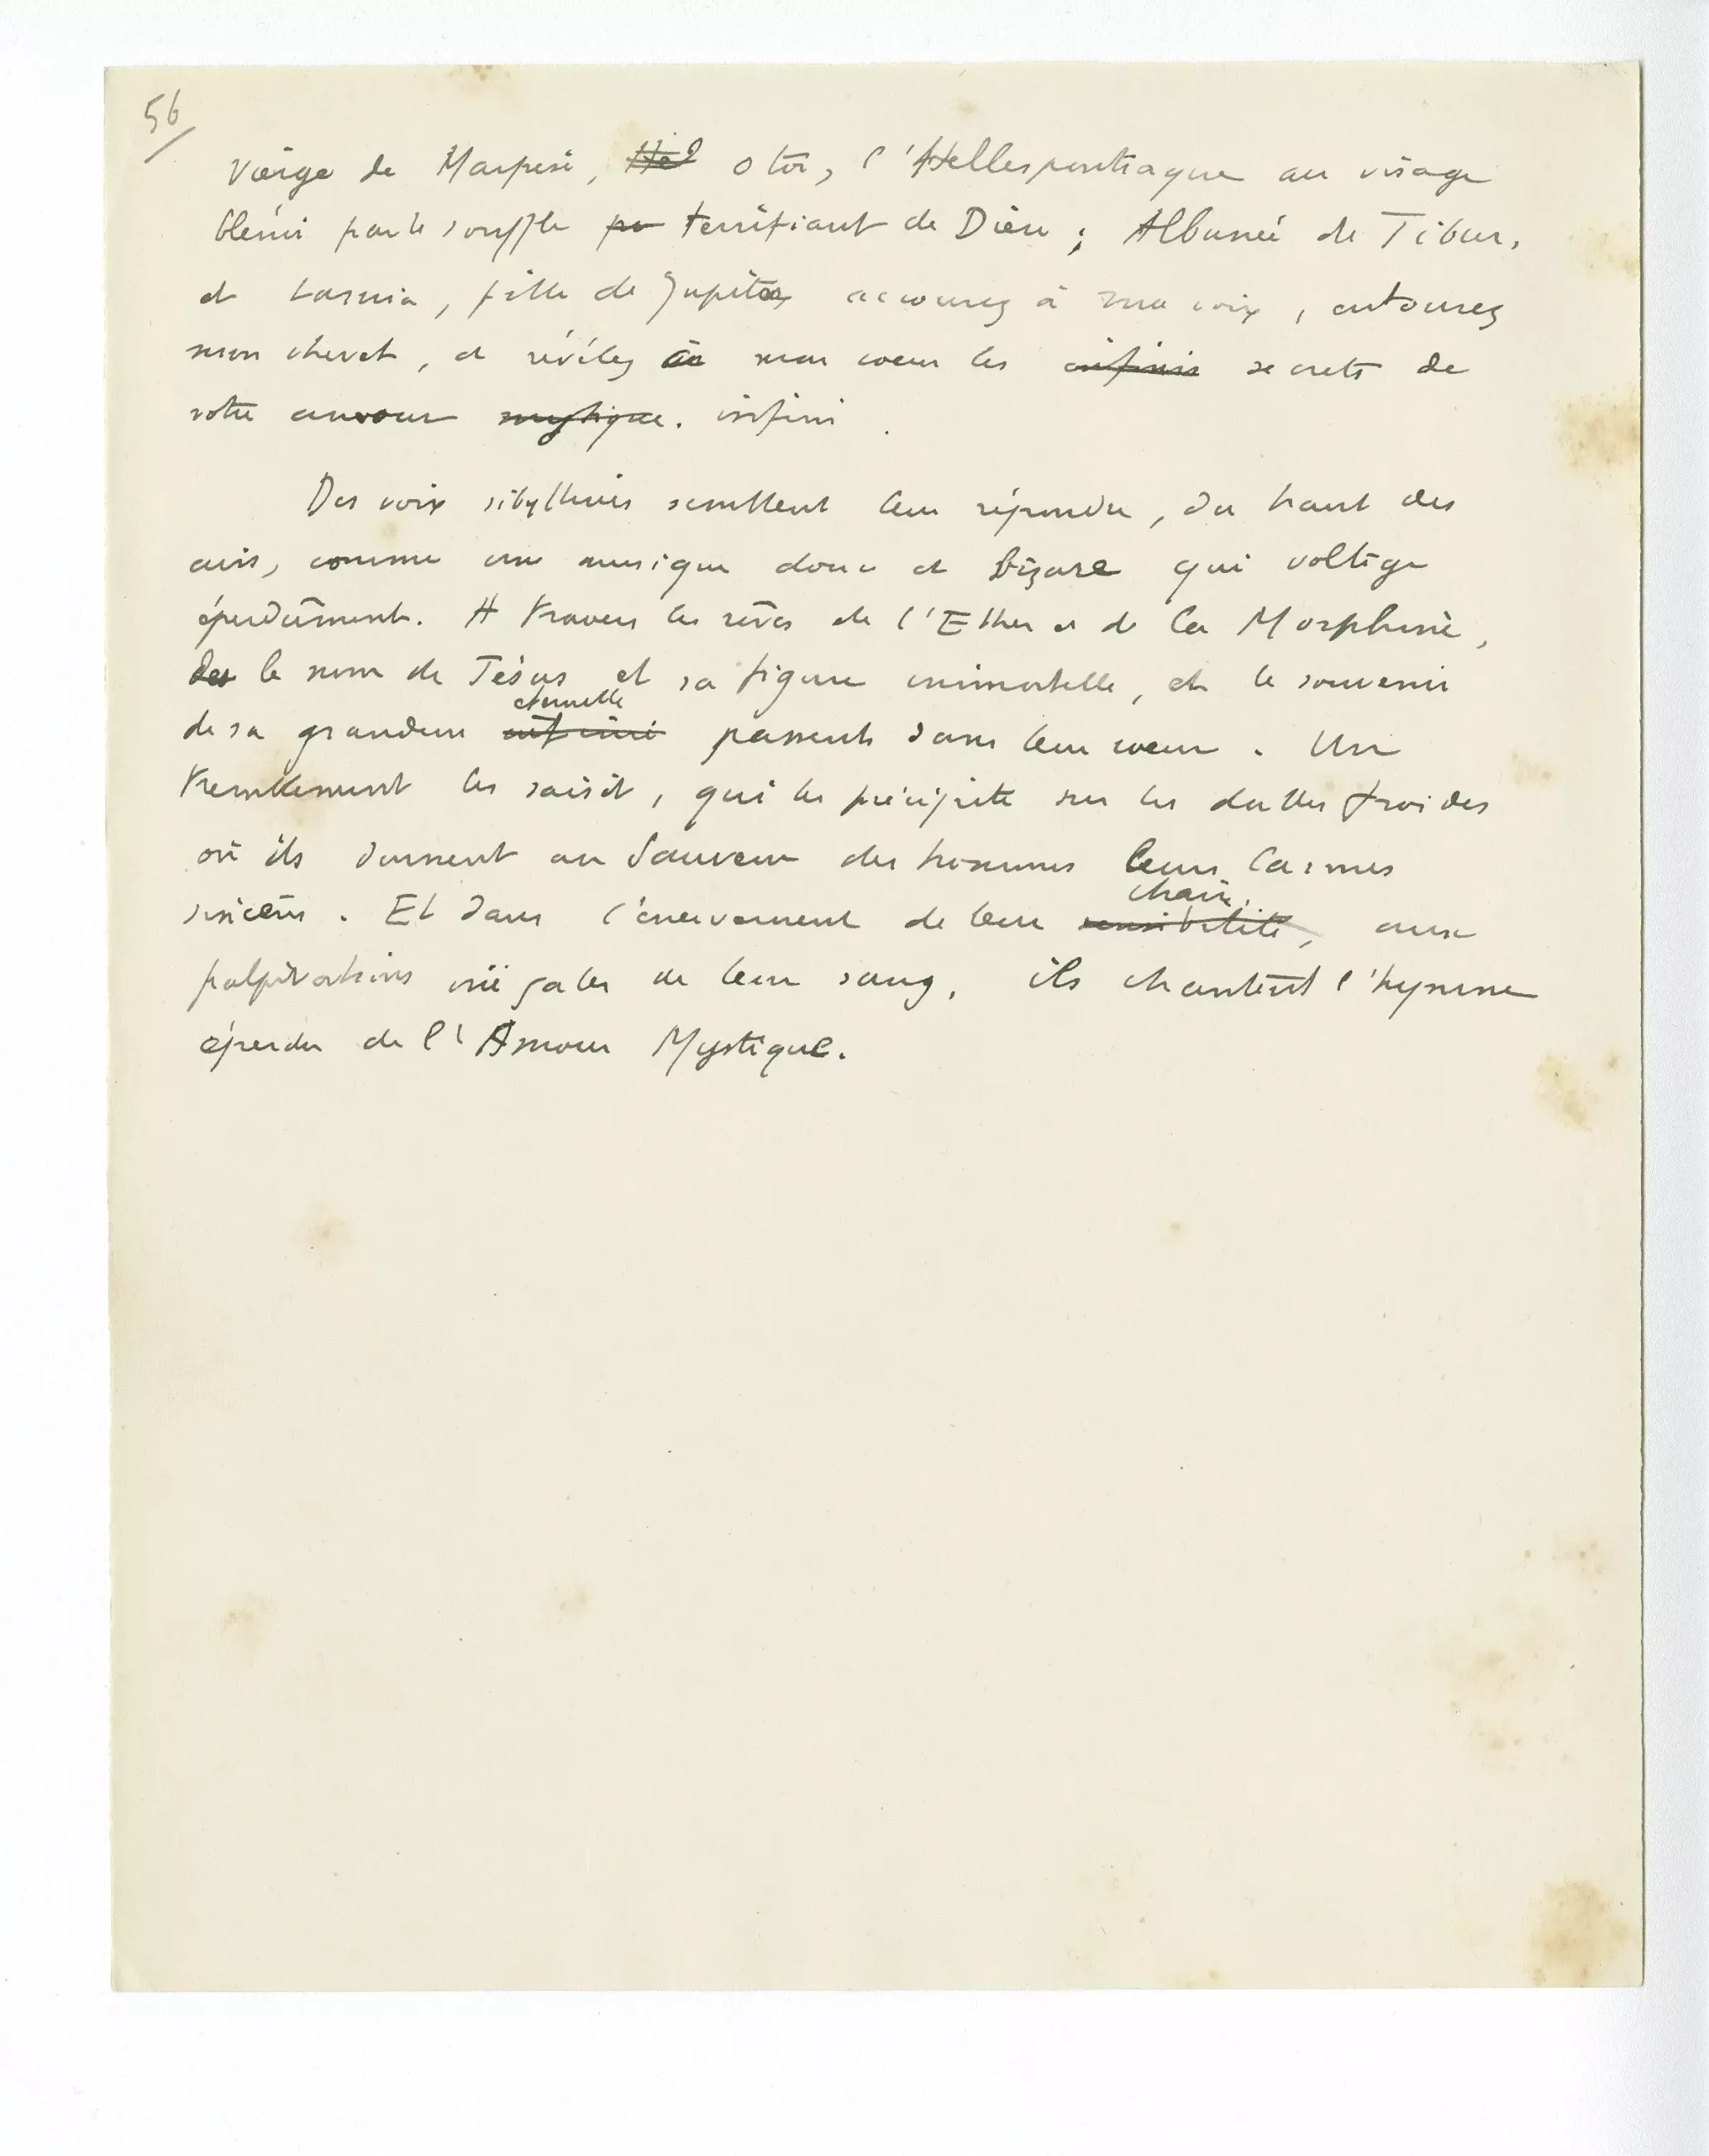 56
Vierge de Marpessi, ô toi, l'Hellespontiaque au visage
blêmi par le souffle terrifiant de Dieu ; Albunée de Tibur,
et Lamia, fille de Jupiter accourez à ma voix, entourez
mon chevet, et révélez à mon coeur les infinis secrets de
votre amour mystique. infini.
Des voix sibyllines semblent leur répondre, du haut des
airs, comme une musique douce et bizare qui voltige
éperdûment. A travers les rêves de l'Ether et de la Morphine,
des le nom de Jésus et sa figure immortelle, et le souvenir
éternelle
de sa grandeur infinie passent dans leur coeur. Un
tremblement les saisit, qui les précipite sur les dalles froides
où ils donnent au Sauveur des hommes leurs larmes
chair,
sincères. Et dans l'énervement de leur sensibilité, aux
palpitations inégales de leur sang, ils chantent l'hymne
éperdu de l'Amour Mystique.